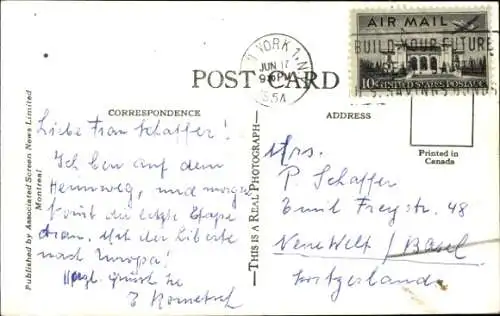 POST CARD
CORRESPONDENCE
ADDRESS
AIR MAIL
BUILD YOUR FUTURE
10¢ UNITED STATES POSTAGE
YORK 1, N
JUN 17
PM
1954
Printed in
Canada
THIS IS A REAL PHOTOGRAPH
Published by Associated Screen News Limited
Montreal
Liebe Frau Schaffer!
Ich bin auf dem
Heimweg, und morgen
kommt die letzte Etappe
dran. Mit der Liberté
nach Europa!
Herzl. Grüsse Ihr
Mrs.
P. Schaffer
Emil Freystr. 48
Neue Welt / Basel